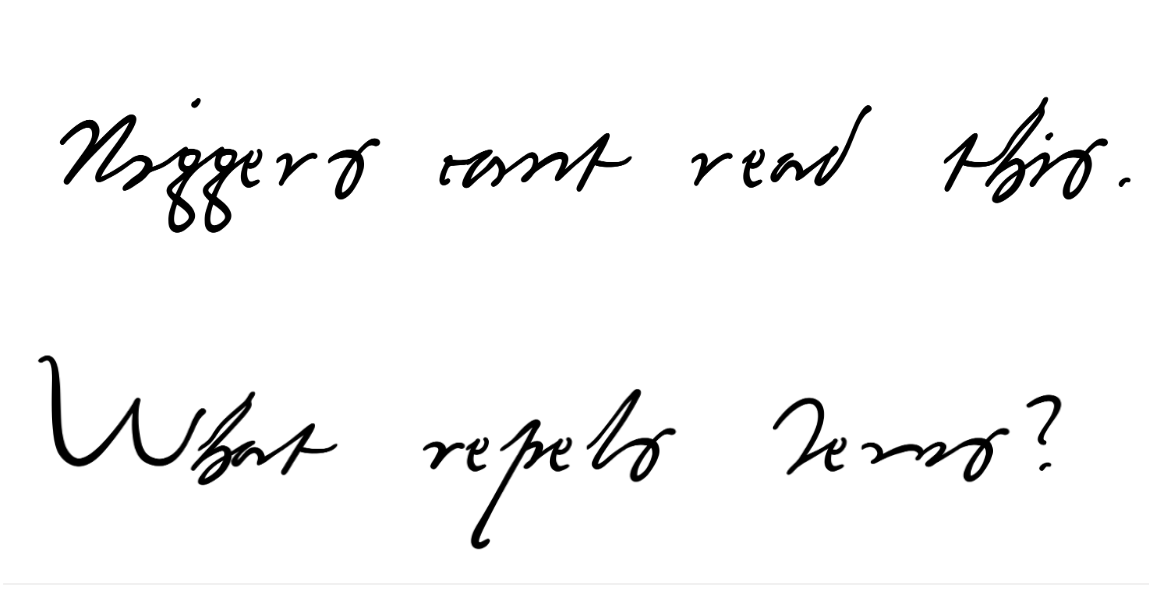 Niggers cant read this.
What repels Jews?